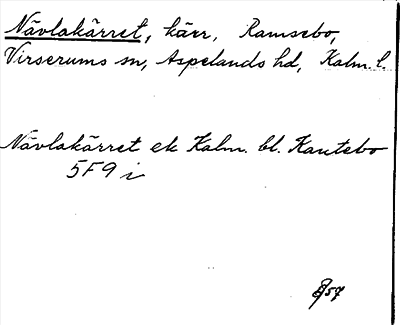 Nävlakärret, kärr, Ramsebo,
Virserums sn, Aspelands hd, Kalm. l.
Nävlakärret ek Kalm. bl. Kantebo
5F9 i
57